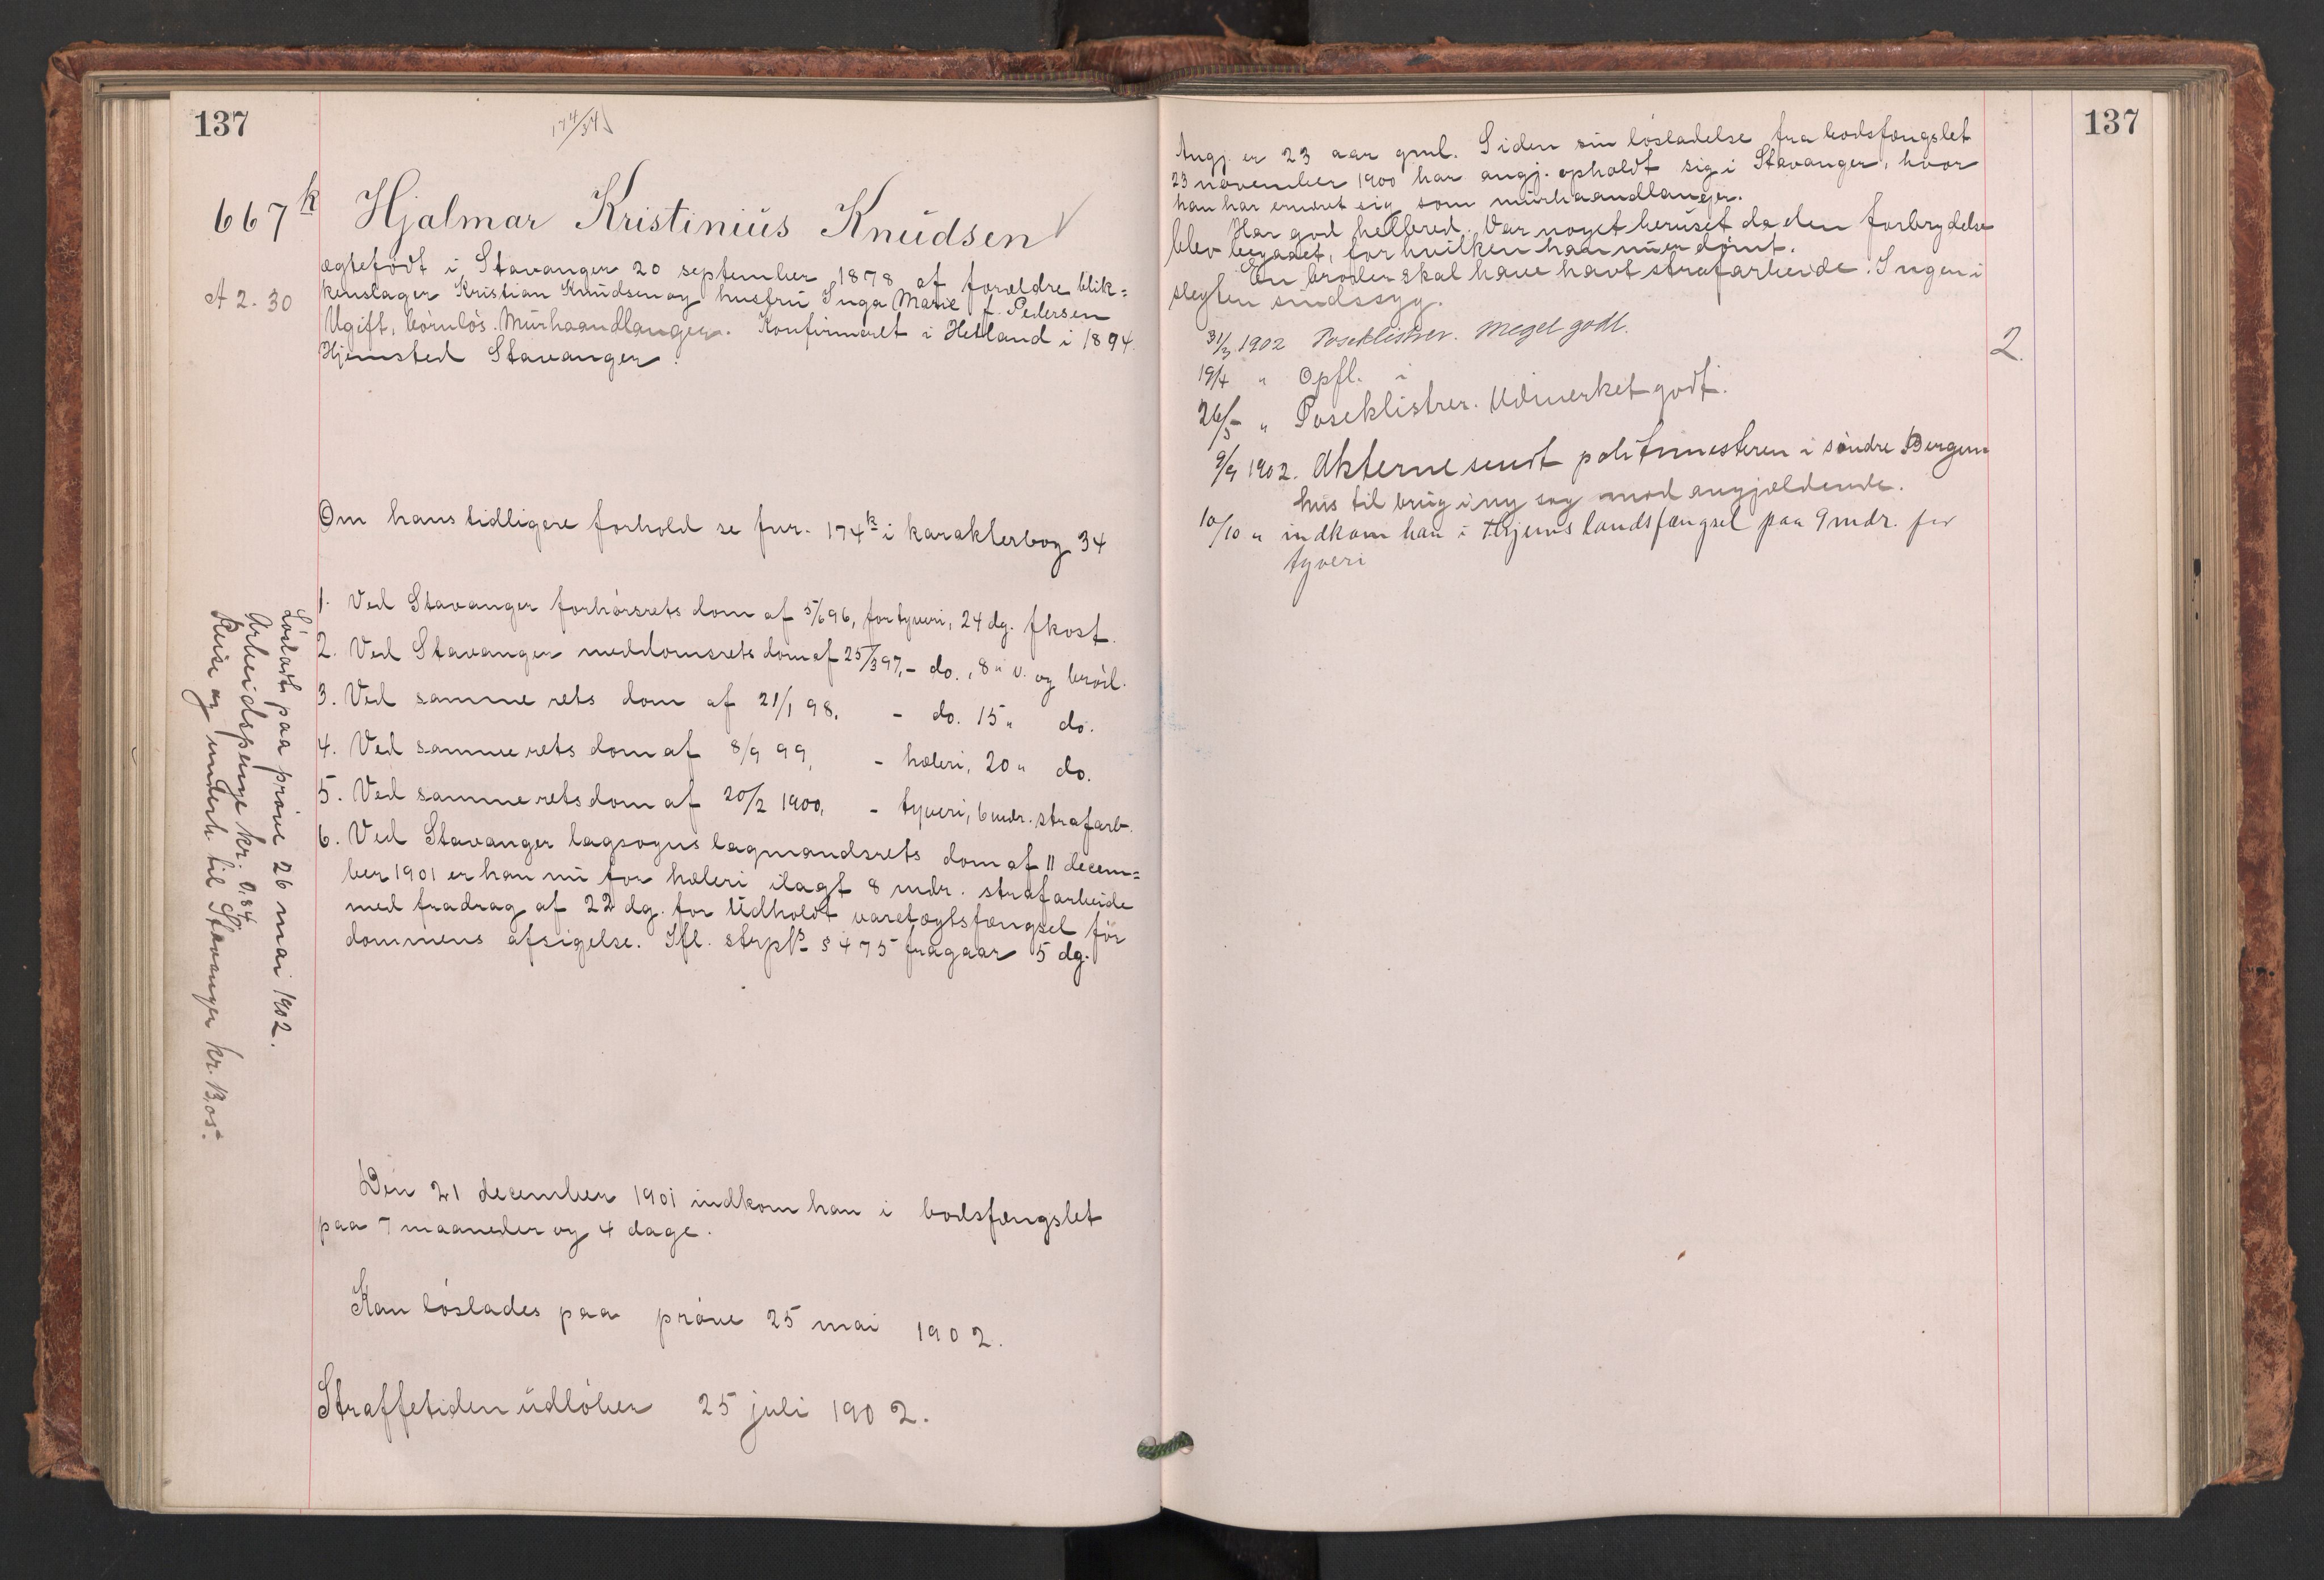 137
174/34
667k Hjalmar Kristinius Knudsen
A 2. 30
ægtefødt i Stavanger 20 september 1878 af forældre blik=
kenslager Kristian Knudsen og husfru Inga Marie f. Pedersen
Ugift, børnløs. Murhaandlanger. Konfirmeret i Hetland i 1894.
Hjemsted Stavanger.
Om hans tidligere forhold se fnr. 174k i karakterbog 34
1. Ved Stavanger forhørsrets dom af 5/6 96, for tyveri, 24 dg. fkost.
2. Ved Stavanger meddomsrets dom af 25/3 97, - do., 8 " v. og brød.
3. Ved samme rets dom af 21/1 98, - do. 15 " do.
4. Ved samme rets dom af 8/9 99, - hæleri, 20 " do.
5. Ved samme rets dom af 20/2 1900, - tyveri, 6 mdr. strafarb.
6. Ved Stavanger lagsogns lagmandsrets dom af 11 decem=
ber 1901 er han nu for hæleri ilagt 8 mdr. strafarbeide
med fradrag af 22 dg. for udholdt varetægtsfængsel før
dommens afsigelse. Ifl. strpl. § 475 fragaar 5 dg.
Løsladt paa prøve 26 mai 1902.
Arbeidspenge kr. 0,84
Reise og underh. til Stavanger kr. 13,05.
Den 21 december 1901 indkom han i bodsfængslet
paa 7 maaneder og 4 dage.
Kan løslades paa prøve 25 mai 1902.
Straffetiden udløber 25 juli 1902.
137
Angj. er 23 aar gml. Siden sin løsladelse fra bodsfængslet
23 november 1900 har angj. opholdt sig i Stavanger, hvor
han har ernæret sig som murhaandlanger.
Har god helbred. Var noget beruset da den forbrydelse
blev begaaet, for hvilken han nu er dømt.
En broder skal have havt strafarbeide. Ingen i
slegten sindssyg.
31/3 1902 Poseklistrer. Meget godt. 2.
19/4 " Opfl. i
26/5 " Poseklistrer. Udmerket godt.
9/9 1902. Akterne sendt politimesteren i søndre Bergen=
hus til brug i ny sag mod angjældende.
10/10 " indkom han i Thjems landsfængsel paa 9 mdr. for
tyveri